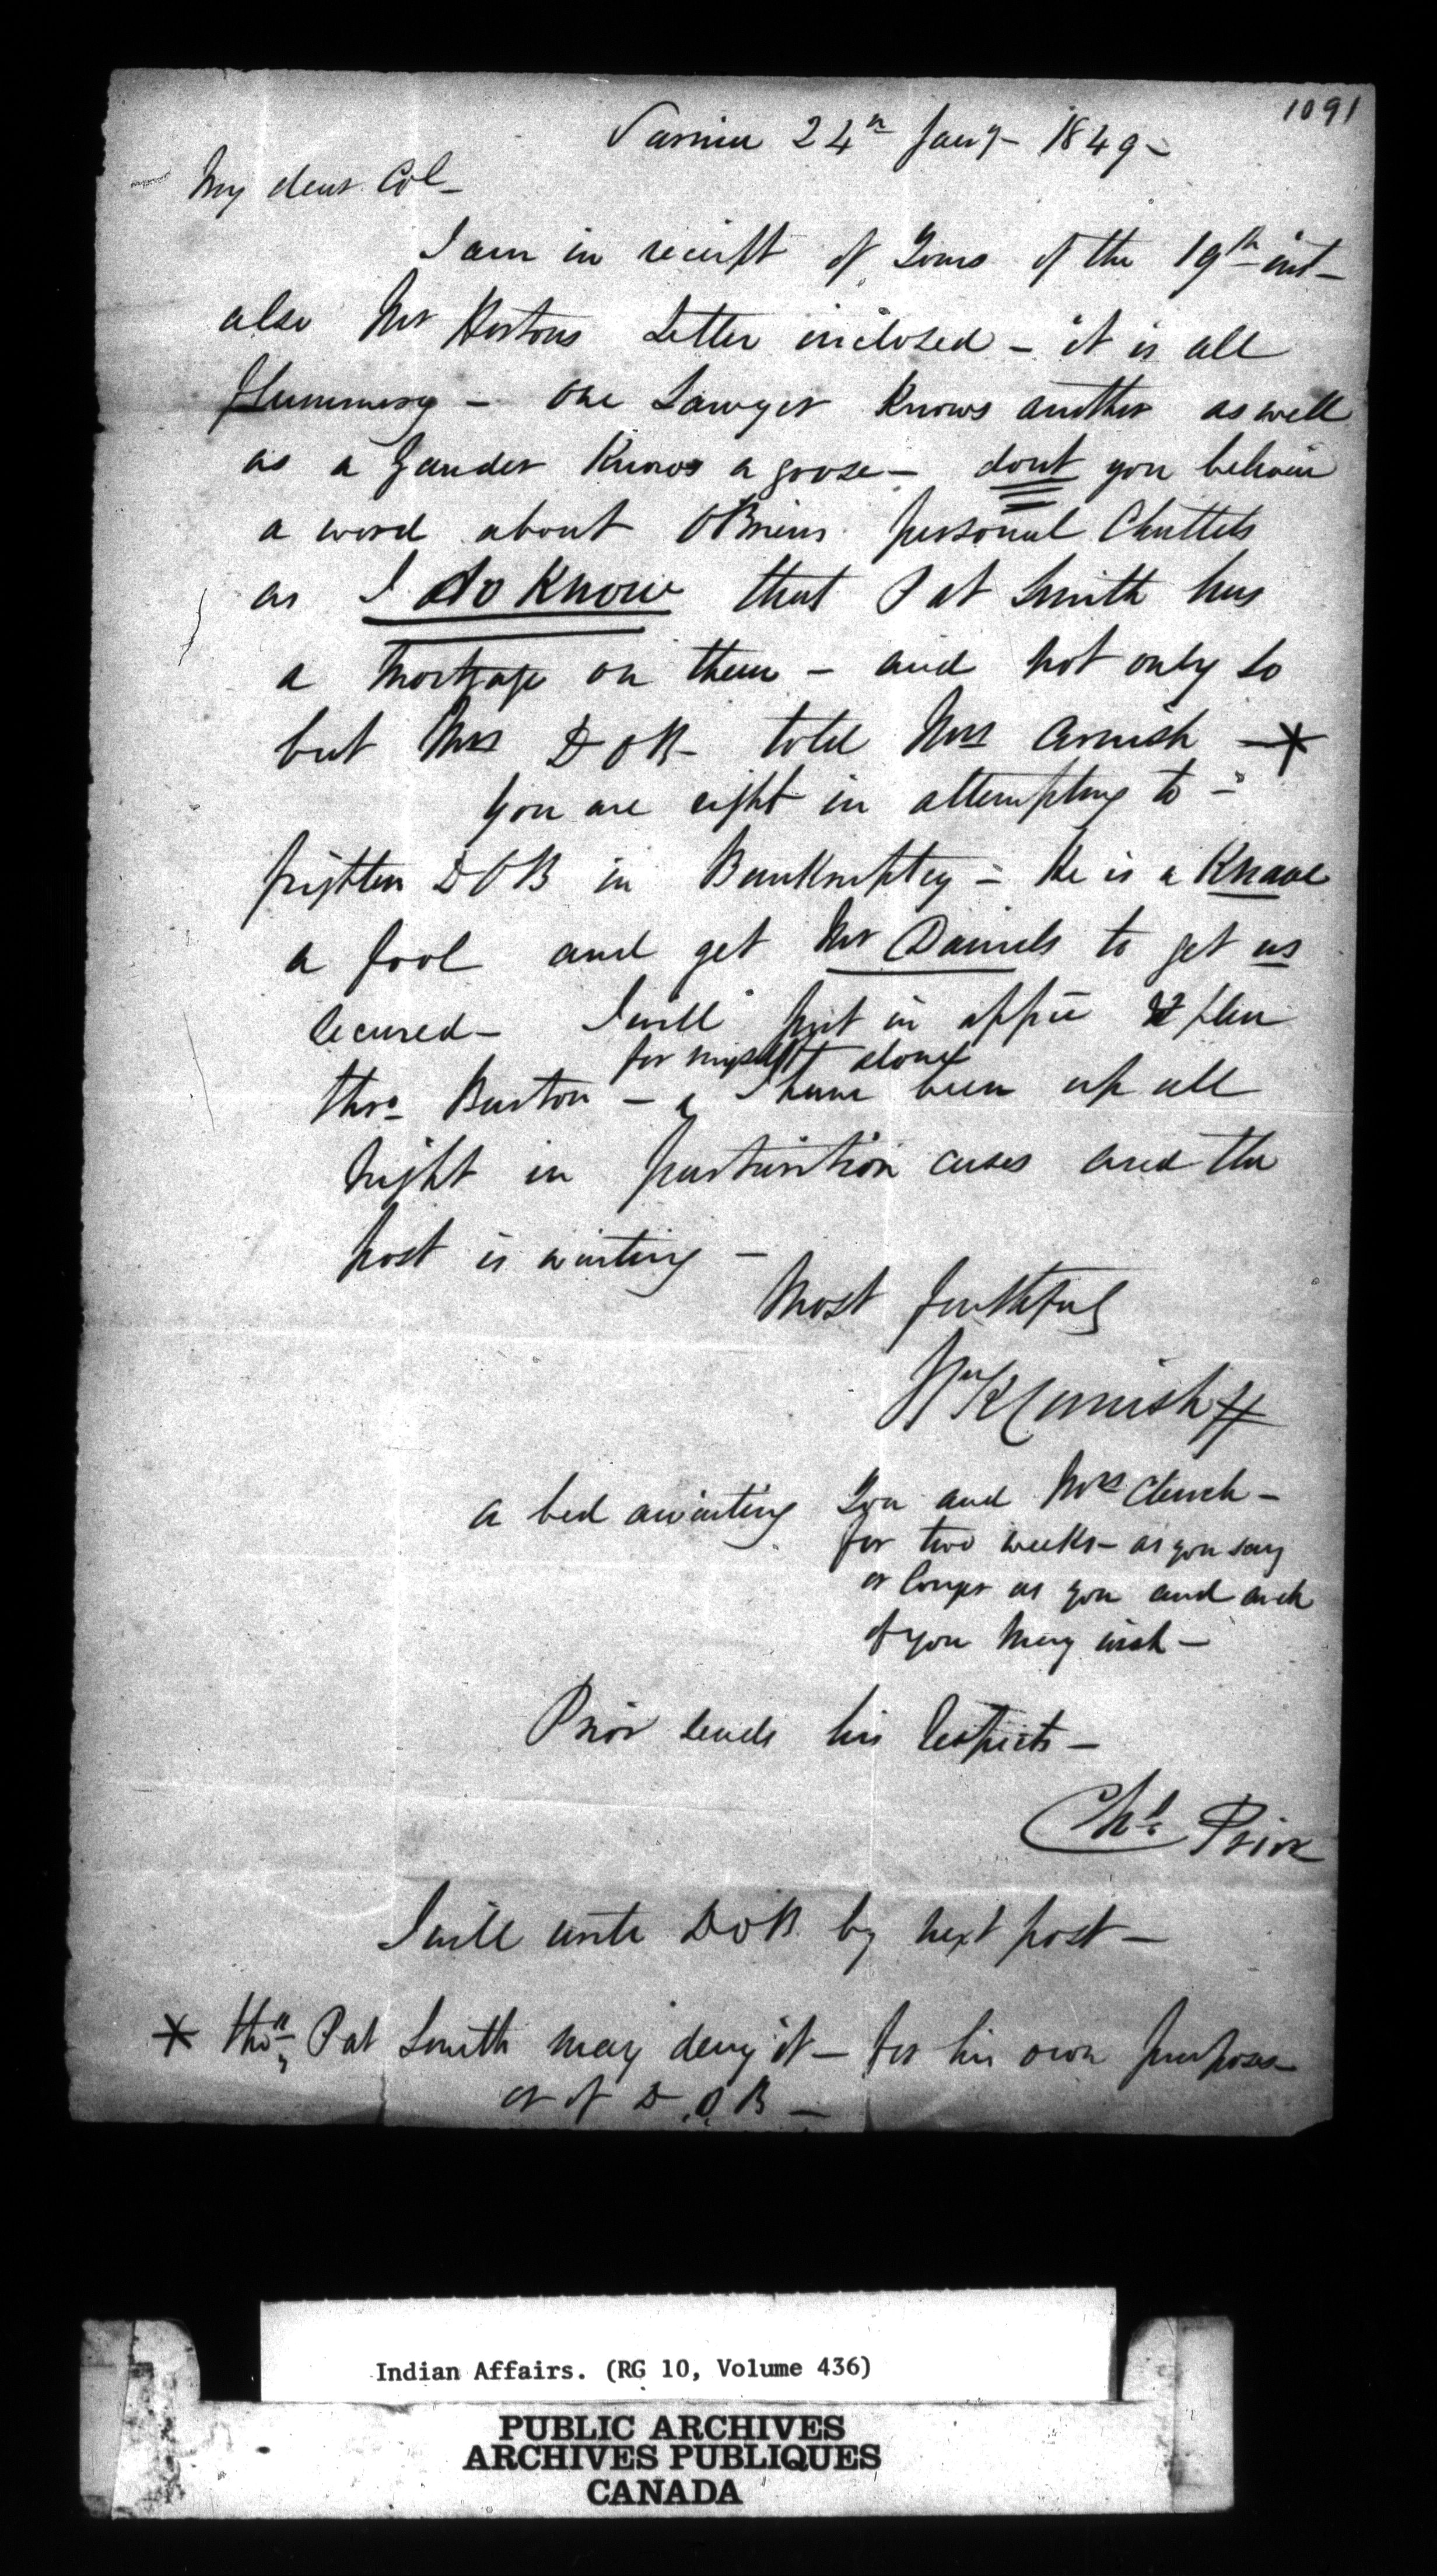 1091
Sarnia 24th Jany - 1849 -
My dear Col -
I am in receipt of Yours of the 19th inst -
also Mr Hortons Letter inclosed - it is all
flummery - one Lawyer Knows another as well
as a Gander Knows a goose - dont you believe
a word about OBriens personal Chattels
as I do Know that Pat Smith has
a Mortgage on them - and not only so
but Mrs D OB - told Mrs Cornish - *
You are right in attempting to -
frighten D OB in Bankruptcy - He is a Knave
a fool and get Mr Daniels to get us
secured - I will put in
for myself alone
thro Burton - I have been up all
night in parturition cases and the
post is waiting -
Most faithful
Wm K Cornish
a bed awaiting You and Mrs Clench -
for two weeks - as you say
or longer as you and
of you may wish -
Prior sends his respects -
Chs Prior
I will write D OB by next post -
* tho Pat Smith may deny it - for his own purposes
or of D.O.B -
Indian Affairs. (RG 10, Volume 436)
PUBLIC ARCHIVES
ARCHIVES PUBLIQUES
CANADA